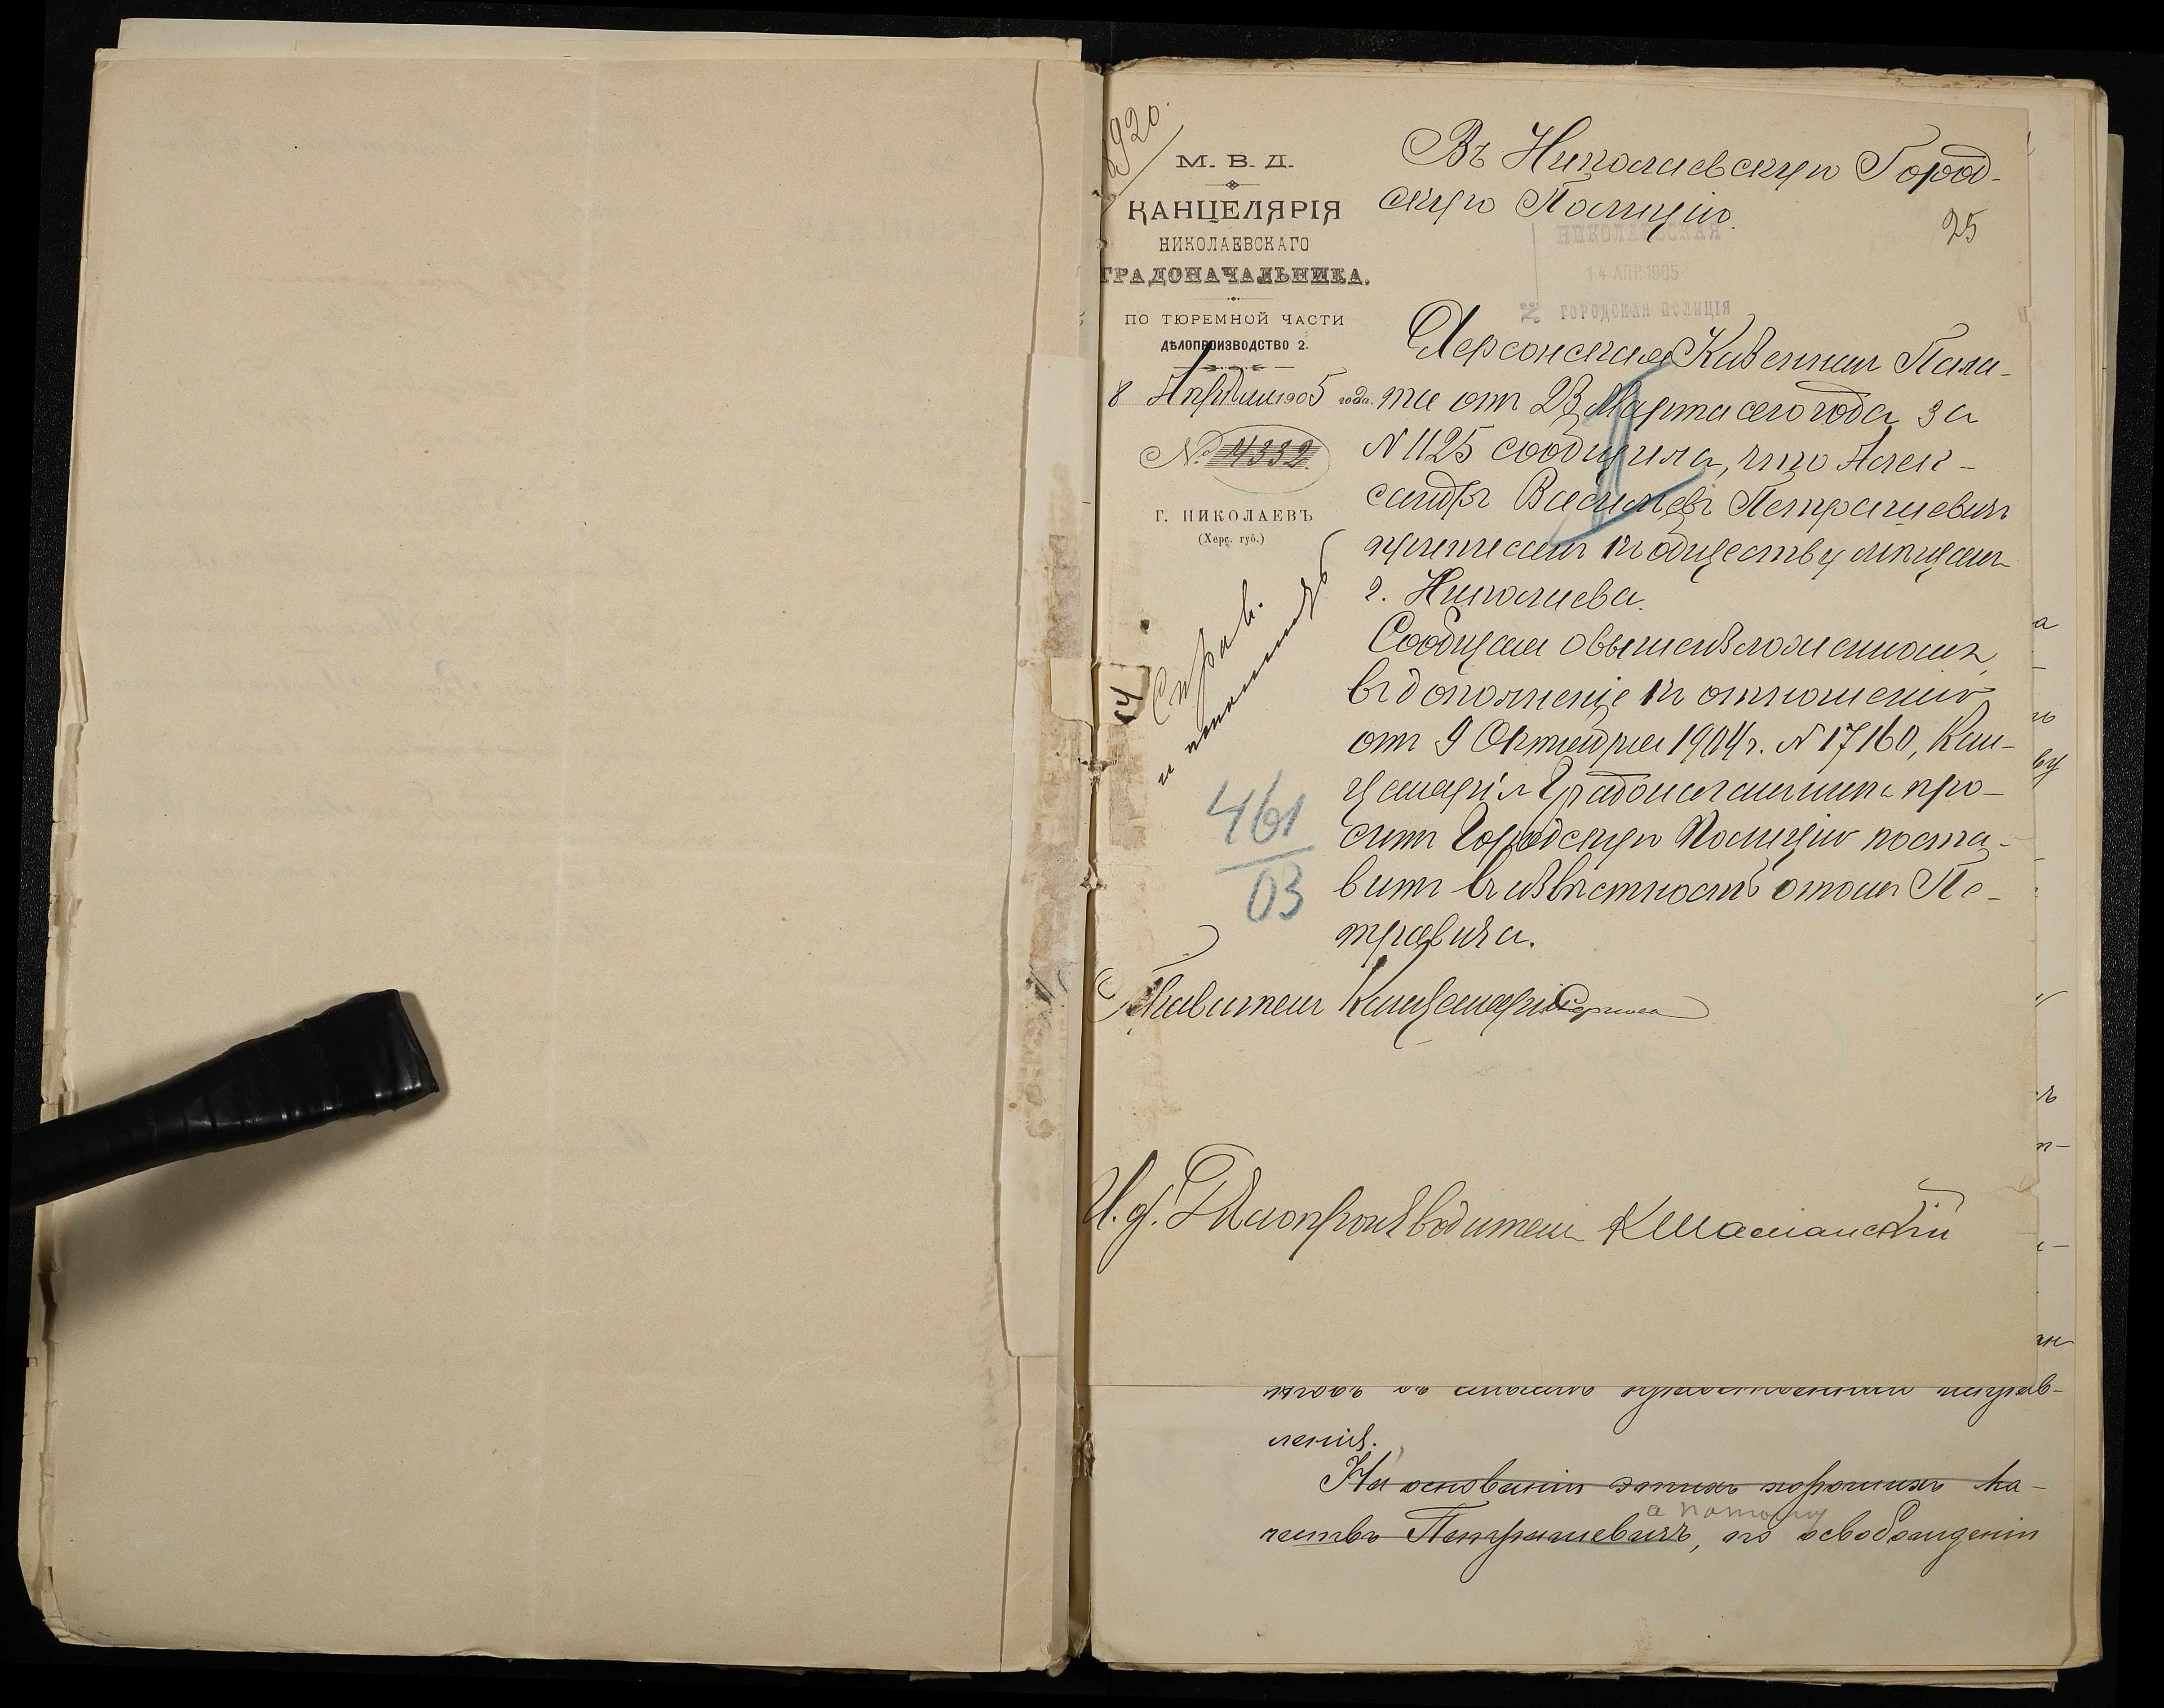 2920
М. В. Д.
КАНЦЕЛЯРІЯ
НИКОЛАЕВСКАГО
ГРАДОНАЧАЛЬНИКА.
ПО ТЮРЕМНОЙ ЧАСТИ
ДѢЛОПРОИЗВОДСТВО 2.
8 Апрѣля 1905 года.
№ 4332
Г. НИКОЛАЕВЪ
(Херс. губ.)
Справ.
и
14
461
03
Въ Николаевскую Город-
скую Полицію.
25
НИКОЛАЕВСКАЯ
14 АПР. 1905
№ ГОРОДСКАЯ ПОЛИЦІЯ
Херсонская Казенная Пала-
та отъ 23 Марта сего года за
N 1125 сообщила, что Алек-
сандръ Васильевъ Петрашевичъ
причисленъ къ обществу мѣщанъ
г. Николаева.
Сообщая о вышеизложенномъ,
въ дополненіе къ отношенію
отъ 9 Октября 1904 г. N 17160, Кан-
целярія Градоначальника про-
ситъ Городскую Полицію поста-
вить въ извѣстность о томъ Пе-
тровича.
Правитель Канцеляріи
И. д. Дѣлопроизводителя КШаманскій
а
ю
ву
ъ
п-
ленія.
На основаніи этихъ хорошихъ ка-
а потому
чествъ Петрашевичъ, по освобожденіи